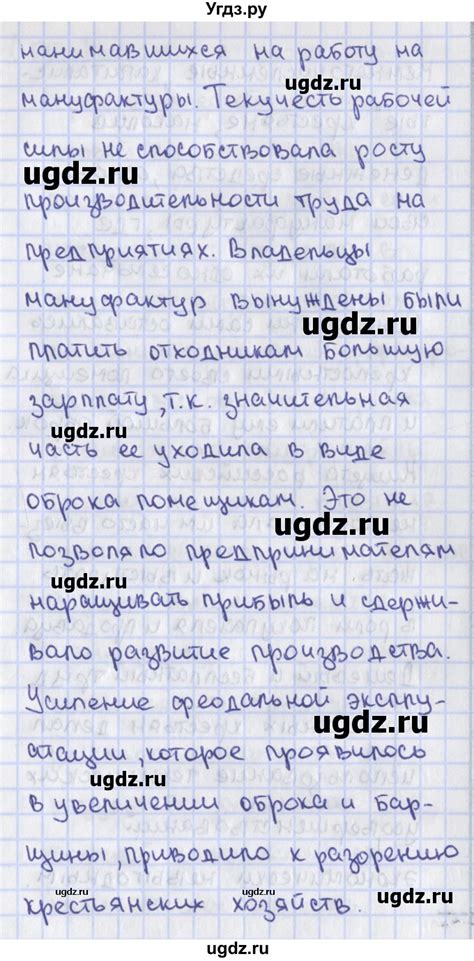 Угдз.ру
нанимавшихся на работу на
ugdz.ru
мануфактуры. Текучесть рабочей
силы не способствовала росту
ugdz.ru
производительности труда на
предприятиях. Владельцы
мануфактур вынуждены были
ugdz.ru
платить отходникам большую
зарплату, т.к. значительная
ugdz.ru
часть ее уходила в виде
оброка помещикам. Это не
ugdz.ru
позволяло предпринимателям
ugdz.ru
наращивать прибыль и сдержи-
вало развитие производства.
Усиление феодальной эксплу-
ugdz.ru
атации, которое проявилось
ugdz.ru
в увеличении оброка и бар-
щины, приводило к разорению
ugdz.ru
ugdz.ru
крестьянских хозяйств.
ugdz.ru